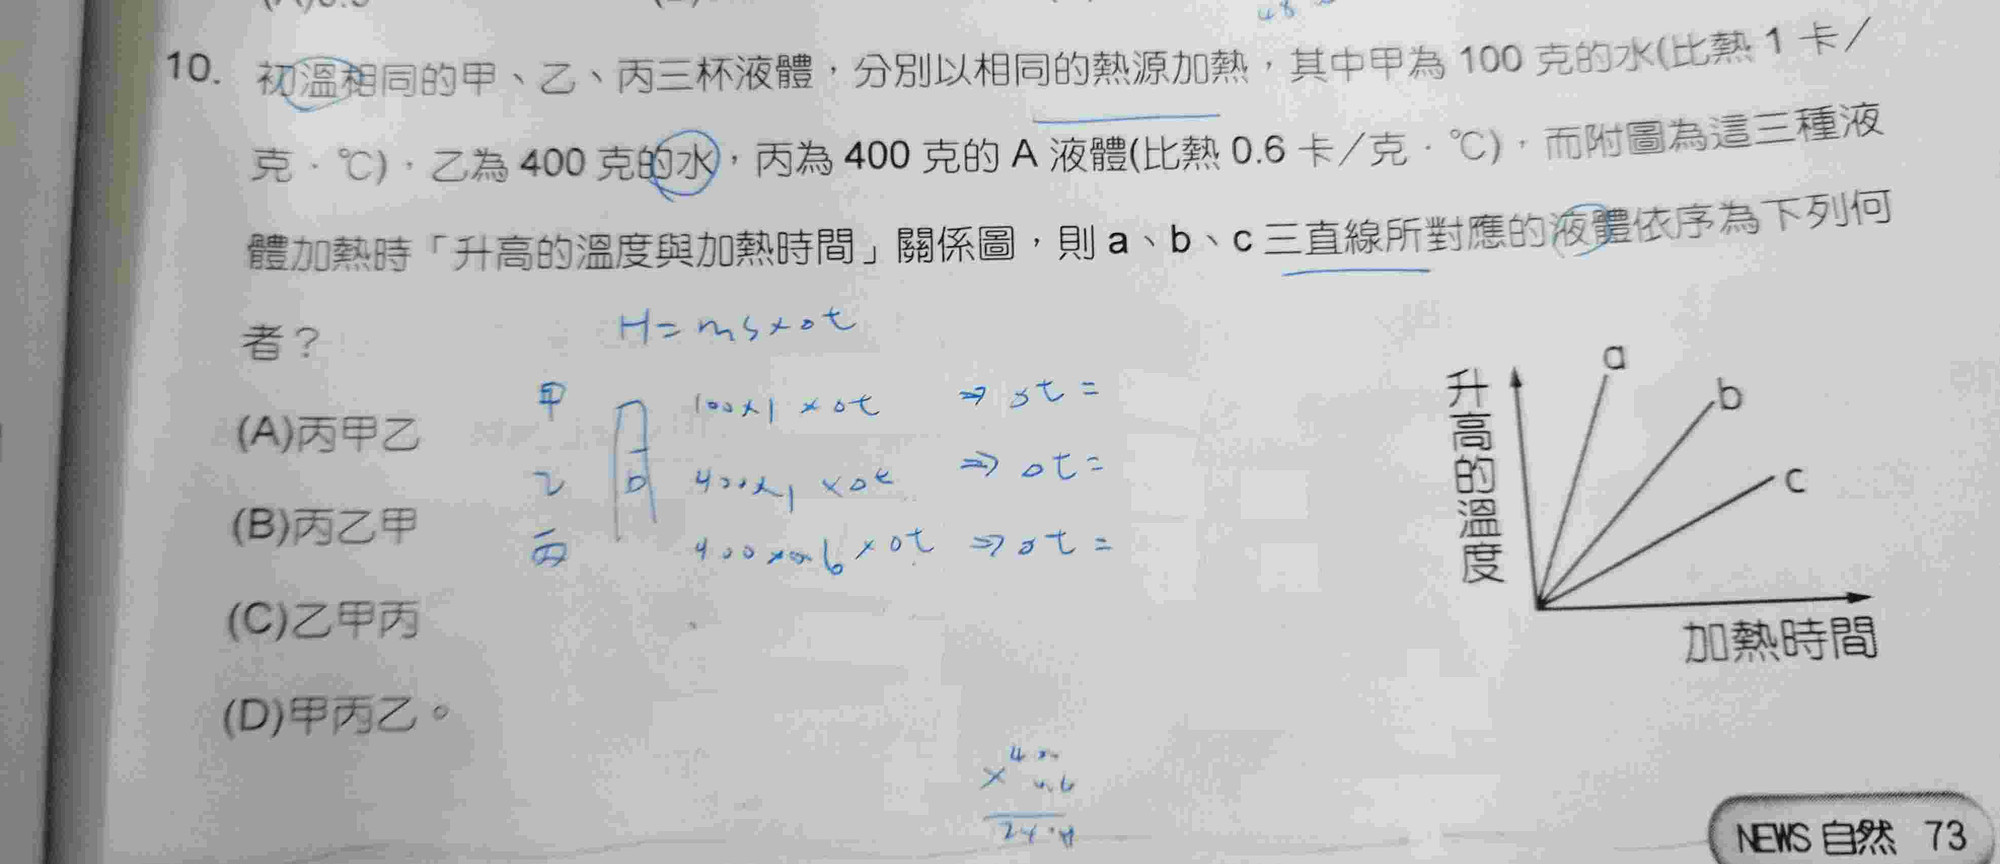 10. 初溫相同的甲、乙、丙三杯液體，分別以相同的熱源加熱，其中甲為 100 克的水(比熱 1 卡／
克．℃)，乙為 400 克的水，丙為 400 克的 A 液體(比熱 0.6 卡／克．℃)，而附圖為這三種液
體加熱時「升高的溫度與加熱時間」關係圖，則 a、b、c 三直線所對應的液體依序為下列何
者？
H = ms×Δt
(A)丙甲乙
(B)丙乙甲
(C)乙甲丙
(D)甲丙乙。
甲 100×1×Δt ⇒ Δt =
乙 400×1×Δt ⇒ Δt =
丙 400×0.6×Δt ⇒ Δt =
升高的溫度
a
b
c
加熱時間
NEWS 自然 73